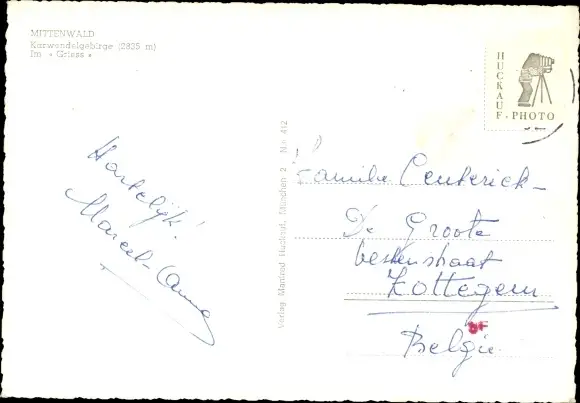 MITTENWALD
Karwendelgebirge (2835 m)
Im « Griess »
HUCKAUF - PHOTO
Hartelijk!
Marcel-Anna
Verlag Manfred Huckauf, München 2 Nr. 412
Familie Centerick-
De Groote
Zottegem
België